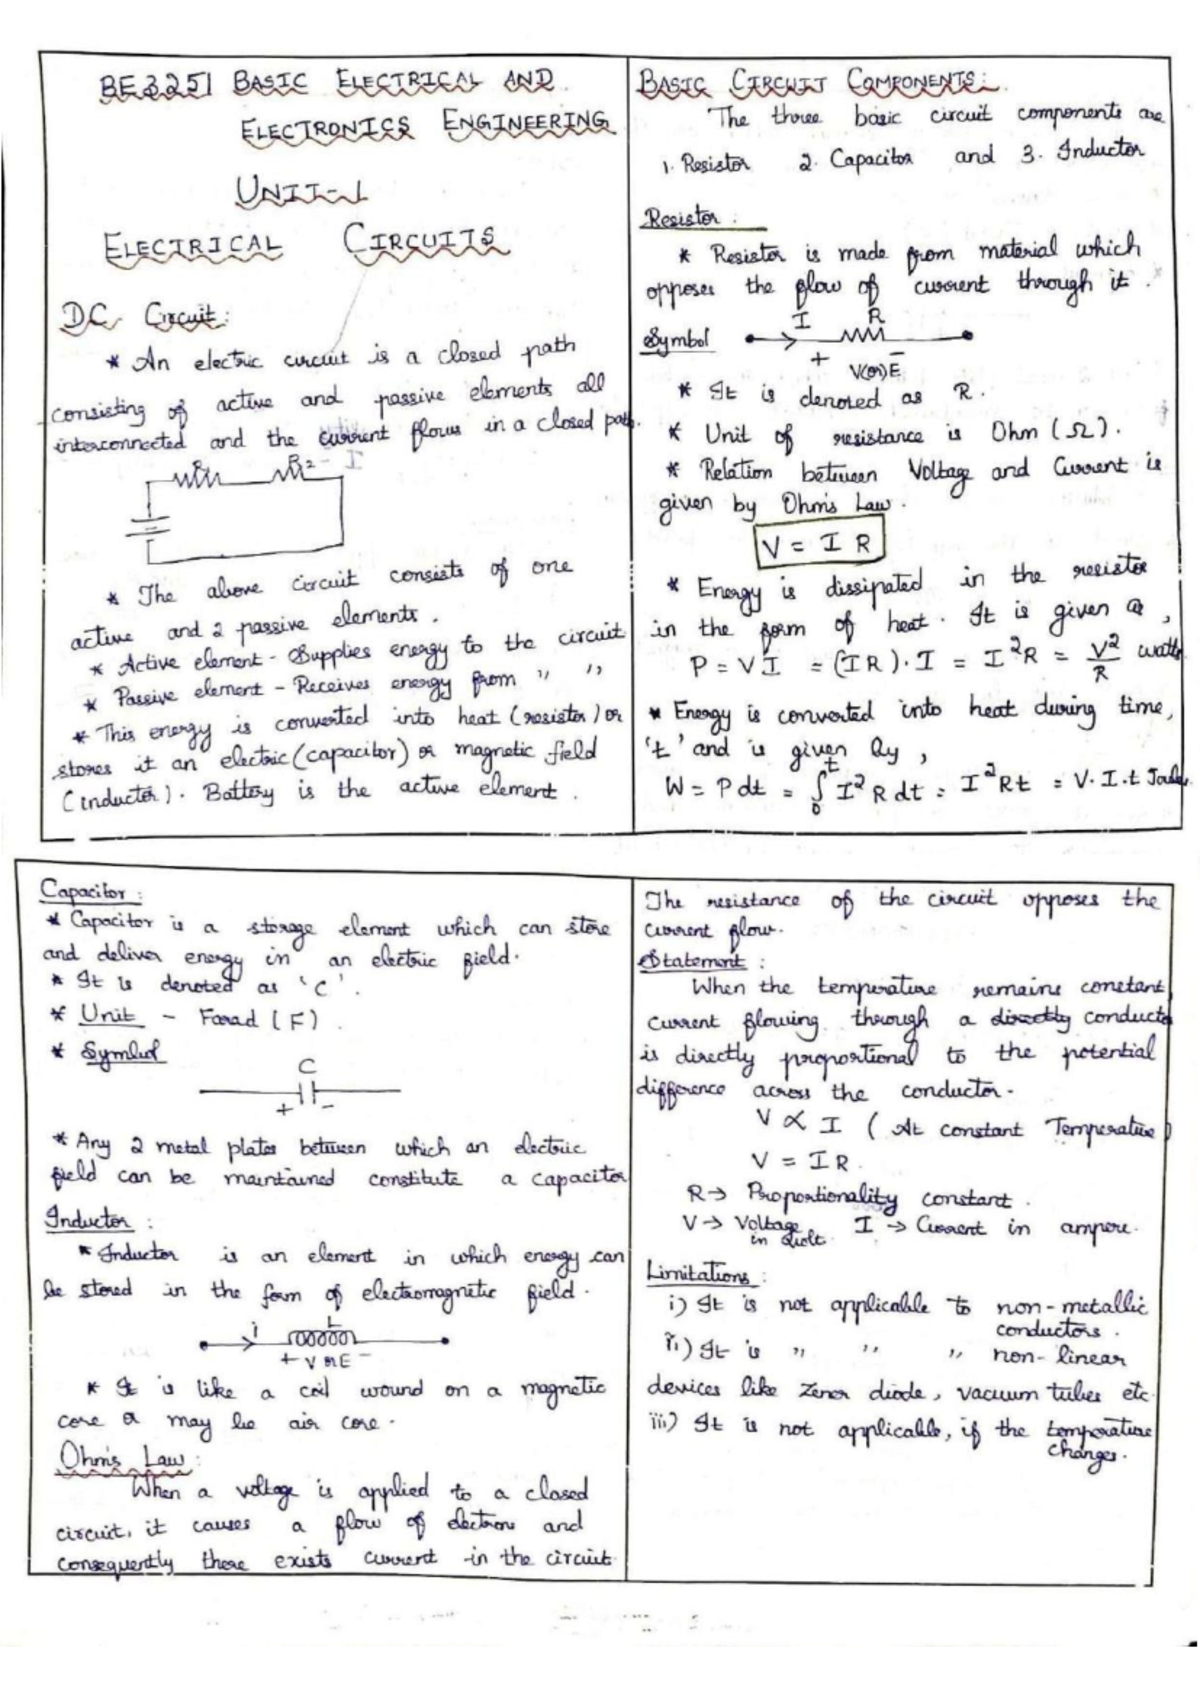 BE3251 BASIC ELECTRICAL AND
ELECTRONICS ENGINEERING
UNIT-1
ELECTRICAL CIRCUITS
DC Circuit:
* An electric circuit is a closed path
consisting of active and passive elements all
interconnected and the current flows in a closed path.
R1 R2 I
* The above circuit consists of one
active and 2 passive elements.
* Active element - Supplies energy to the circuit
* Passive element - Receives energy from " "
* This energy is converted into heat (resistor) or
stores it an electric (capacitor) or magnetic field
(inductor). Battery is the active element.
BASIC CIRCUIT COMPONENTS:
The three basic circuit components are
1. Resistor 2. Capacitor and 3. Inductor
Resistor:
* Resistor is made from material which
opposes the flow of current through it.
Symbol I R
+ V(or)E -
* It is denoted as R.
* Unit of resistance is Ohm (Ω).
* Relation between Voltage and Current is
given by Ohm's Law.
V = I R
* Energy is dissipated in the resistor
in the form of heat. It is given as,
P = VI = (IR).I = I²R = V²/R watts
* Energy is converted into heat during time,
't' and is given by,
W = Pdt = ∫₀ᵗ I²R dt = I²Rt = V.I.t Joules
Capacitor:
* Capacitor is a storage element which can store
and deliver energy in an electric field.
* It is denoted as 'C'.
* Unit - Farad (F).
* Symbol
C
+ -
* Any 2 metal plates between which an electric
field can be maintained constitute a capacitor
Inductor:
* Inductor is an element in which energy can
be stored in the form of electromagnetic field.
i L
+ V or E -
* It is like a coil wound on a magnetic
core or may be air core.
Ohm's Law:
When a voltage is applied to a closed
circuit, it causes a flow of electrons and
consequently there exists current in the circuit.
The resistance of the circuit opposes the
current flow.
Statement:
When the temperature remains constant,
current flowing through a directly conductor
is directly proportional to the potential
difference across the conductor.
V ∝ I (At constant Temperature)
V = IR.
R → Proportionality constant.
V → Voltage in volt. I → Current in ampere.
Limitations:
i) It is not applicable to non-metallic
conductors.
ii) It is " " " non-linear
devices like Zener diode, vacuum tubes etc.
iii) It is not applicable, if the temperature
changes.